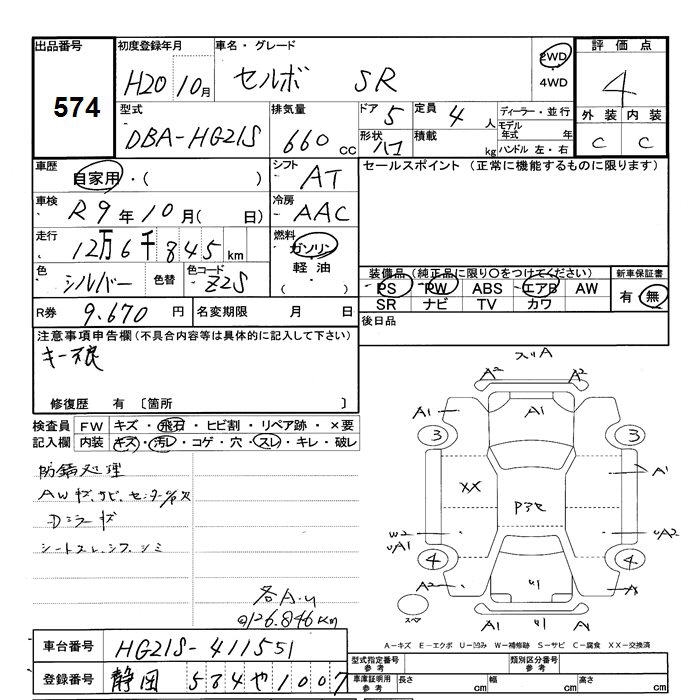 出品番号 初度登録年月 車名・グレード 評価点
574
H20 10月 セルボ SR 2WD ・ 4WD 4
型式 排気量 ドア 5 定員 4人 ディーラー・並行 外装 内装
DBA-HG21S 660cc 形状 ハコ 積載 kg モデル年式 年 C C
ハンドル 左・右
車歴 自家用・( ) シフト AT セールスポイント (正常に機能するものに限ります)
車検 R9年10月( 日) 冷房 AAC
走行 12万6千845km 燃料 ガソリン ・ 軽油 ( )
色 シルバー 色替 色コード Z2S
装備品 (純正品に限り〇をつけてください) 新車保証書
PS PW ABS エアB AW 有・無
SR ナビ TV カワ
R券 9.670円 名変期限 月 日
後日品
注意事項申告欄(不具合内容等は具体的に記入して下さい)
キー不良
修復歴 有 〔箇所 〕
検査員 FW キズ・飛石・ヒビ割・リペア跡・×要
記入欄 内装 キズ・汚レ・コゲ・穴・スレ・キレ・破レ
防錆処理
AWキズ、サビ、センターキャップ欠
Dミラーキズ
シートスレ、シワ、シミ
各A.U
126.846Km
スリA
A2 A2
A1 A1 A
3 3
XX Pアセ A1
W2 UA1 UA2
4 4
A2 リ A
スペア A1 リ A
A-キズ E-エクボ U-凹み W-補修跡 S-サビ C-腐食 XX-交換済
車台番号 HG21S-411551
登録番号 静岡 584や1007
型式指定番号 参考 類別区分番号 参考
車庫証明用 参考 長さ cm 幅 cm 高さ cm